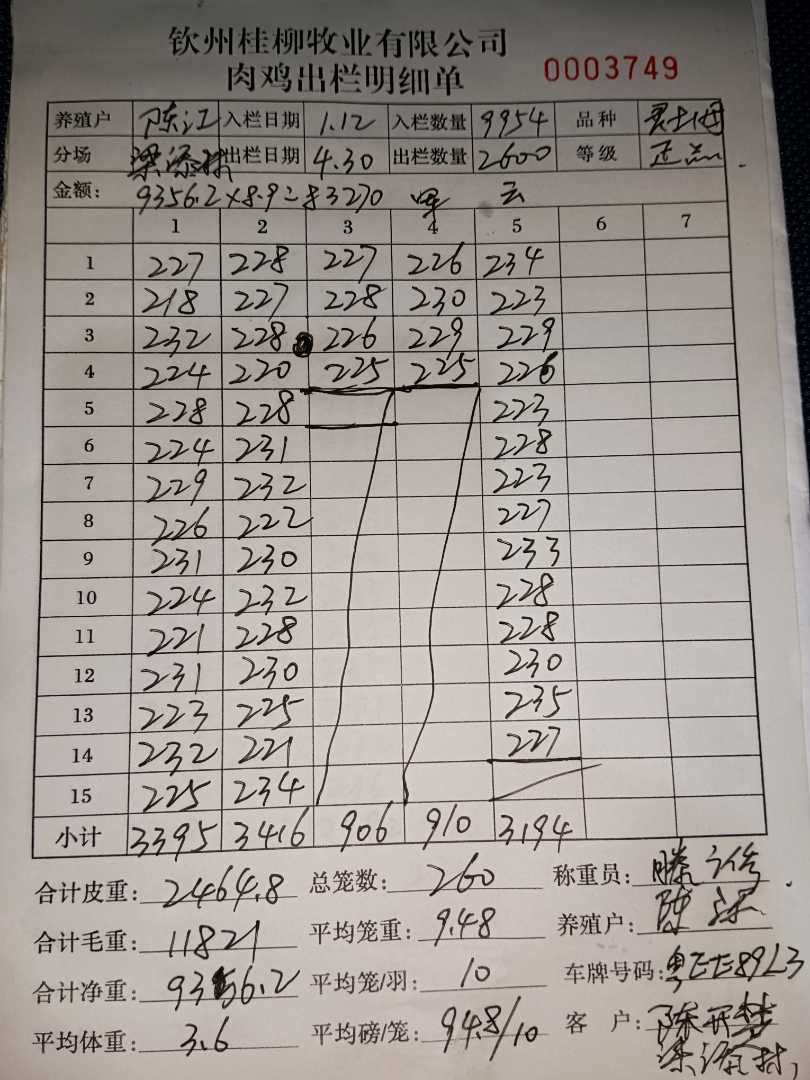 钦州桂柳牧业有限公司
肉鸡出栏明细单 0003749
养殖户 陈江 入栏日期 1.12 入栏数量 9954 品种
分场 梁添林 出栏日期 4.30 出栏数量 2600 等级 正品
金额: 9356.2×8.9=83270
1 2 3 4 5 6 7
1 227 228 227 226 234
2 218 227 228 230 223
3 232 228 226 229 229
4 224 220 225 225 226
5 228 228 223
6 224 231 228
7 229 232 223
8 226 222 227
9 231 230 233
10 224 232 228
11 221 228 228
12 231 230 230
13 223 225 235
14 232 221 227
15 225 234
小计 3395 3416 906 910 3194
合计皮重: 2464.8 总笼数: 260 称重员:
合计毛重: 11821 平均笼重: 9.48 养殖户: 陈
合计净重: 9356.2 平均笼/羽: 10 车牌号码:
平均体重: 3.6 平均磅/笼: 94.8/10 客户: 陈开
梁添林